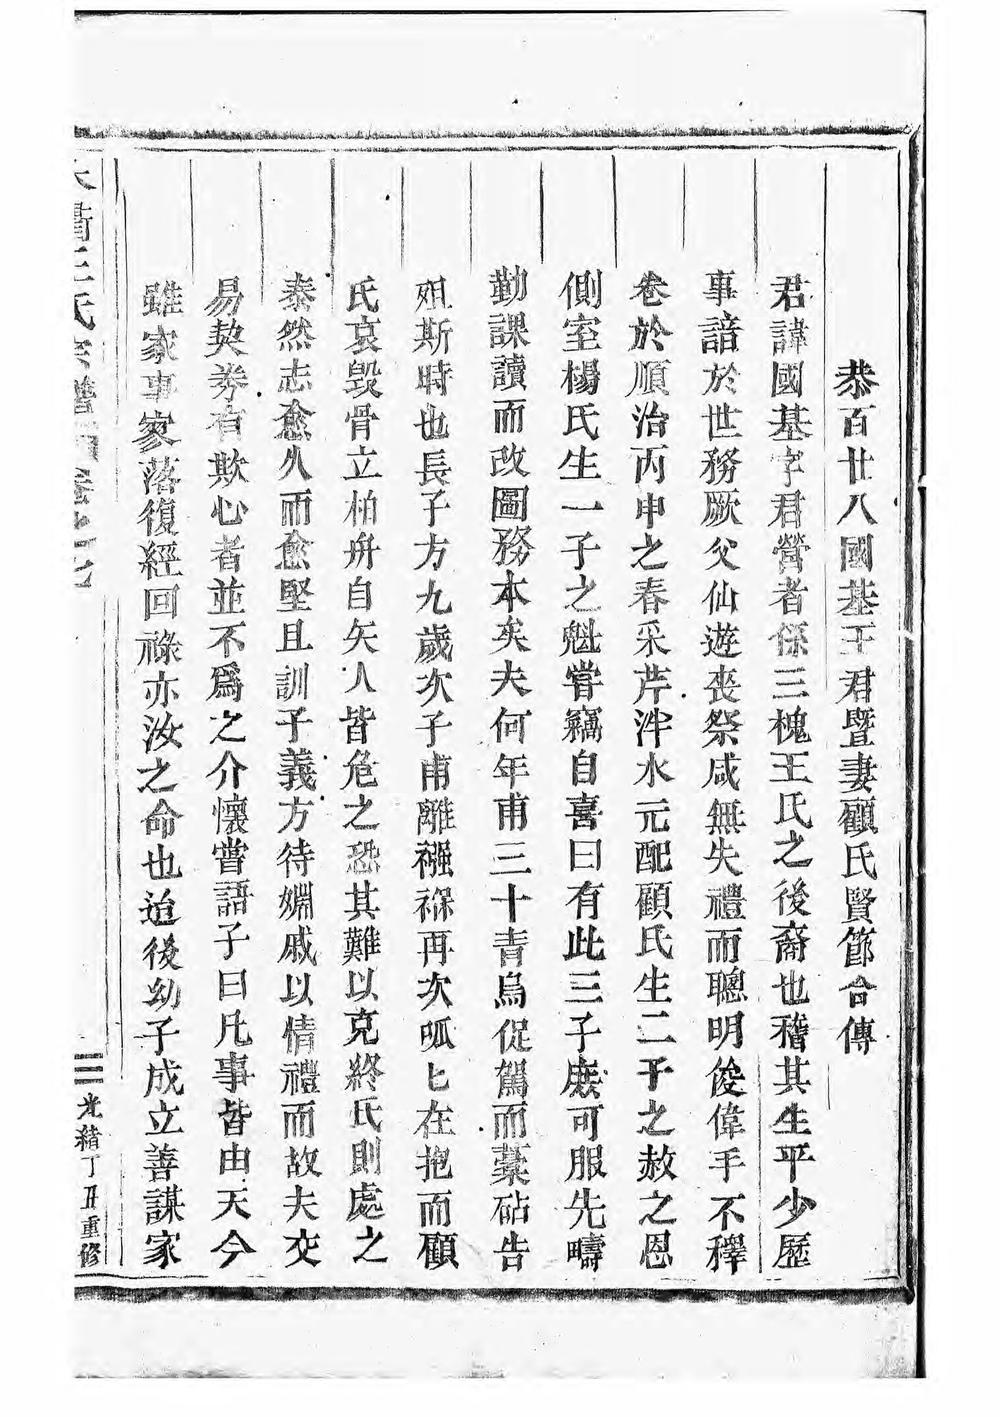 恭百廿八國基王君暨妻顧氏賢節合傳
君諱國基字君營者係三槐王氏之後裔也稽其生平少歷
事諳於世務厥父仙遊喪祭咸無失禮而聰明俊偉手不釋
卷於順治丙申之春采芹泮水元配顧氏生二子之赦之恩
側室楊氏生一子之魁嘗竊自喜曰有此三子庶可服先疇
勤課讀而改圖務本矣夫何年甫三十青烏促駕而藁砧告
殂斯時也長子方九歲次子甫離襁褓再次呱匕在抱而顧
氏哀毀骨立柏舟自矢人皆危之恐其難以克終氏則處之
泰然志愈久而愈堅且訓子義方待婣戚以情禮而故夫交
易契劵有欺心者並不爲之介懷嘗語子曰凡事皆由天今
雖家事寥落復經回祿亦汝之命也迨後幼子成立善謀家
王氏宗譜 卷之七
三 光緒丁丑重修